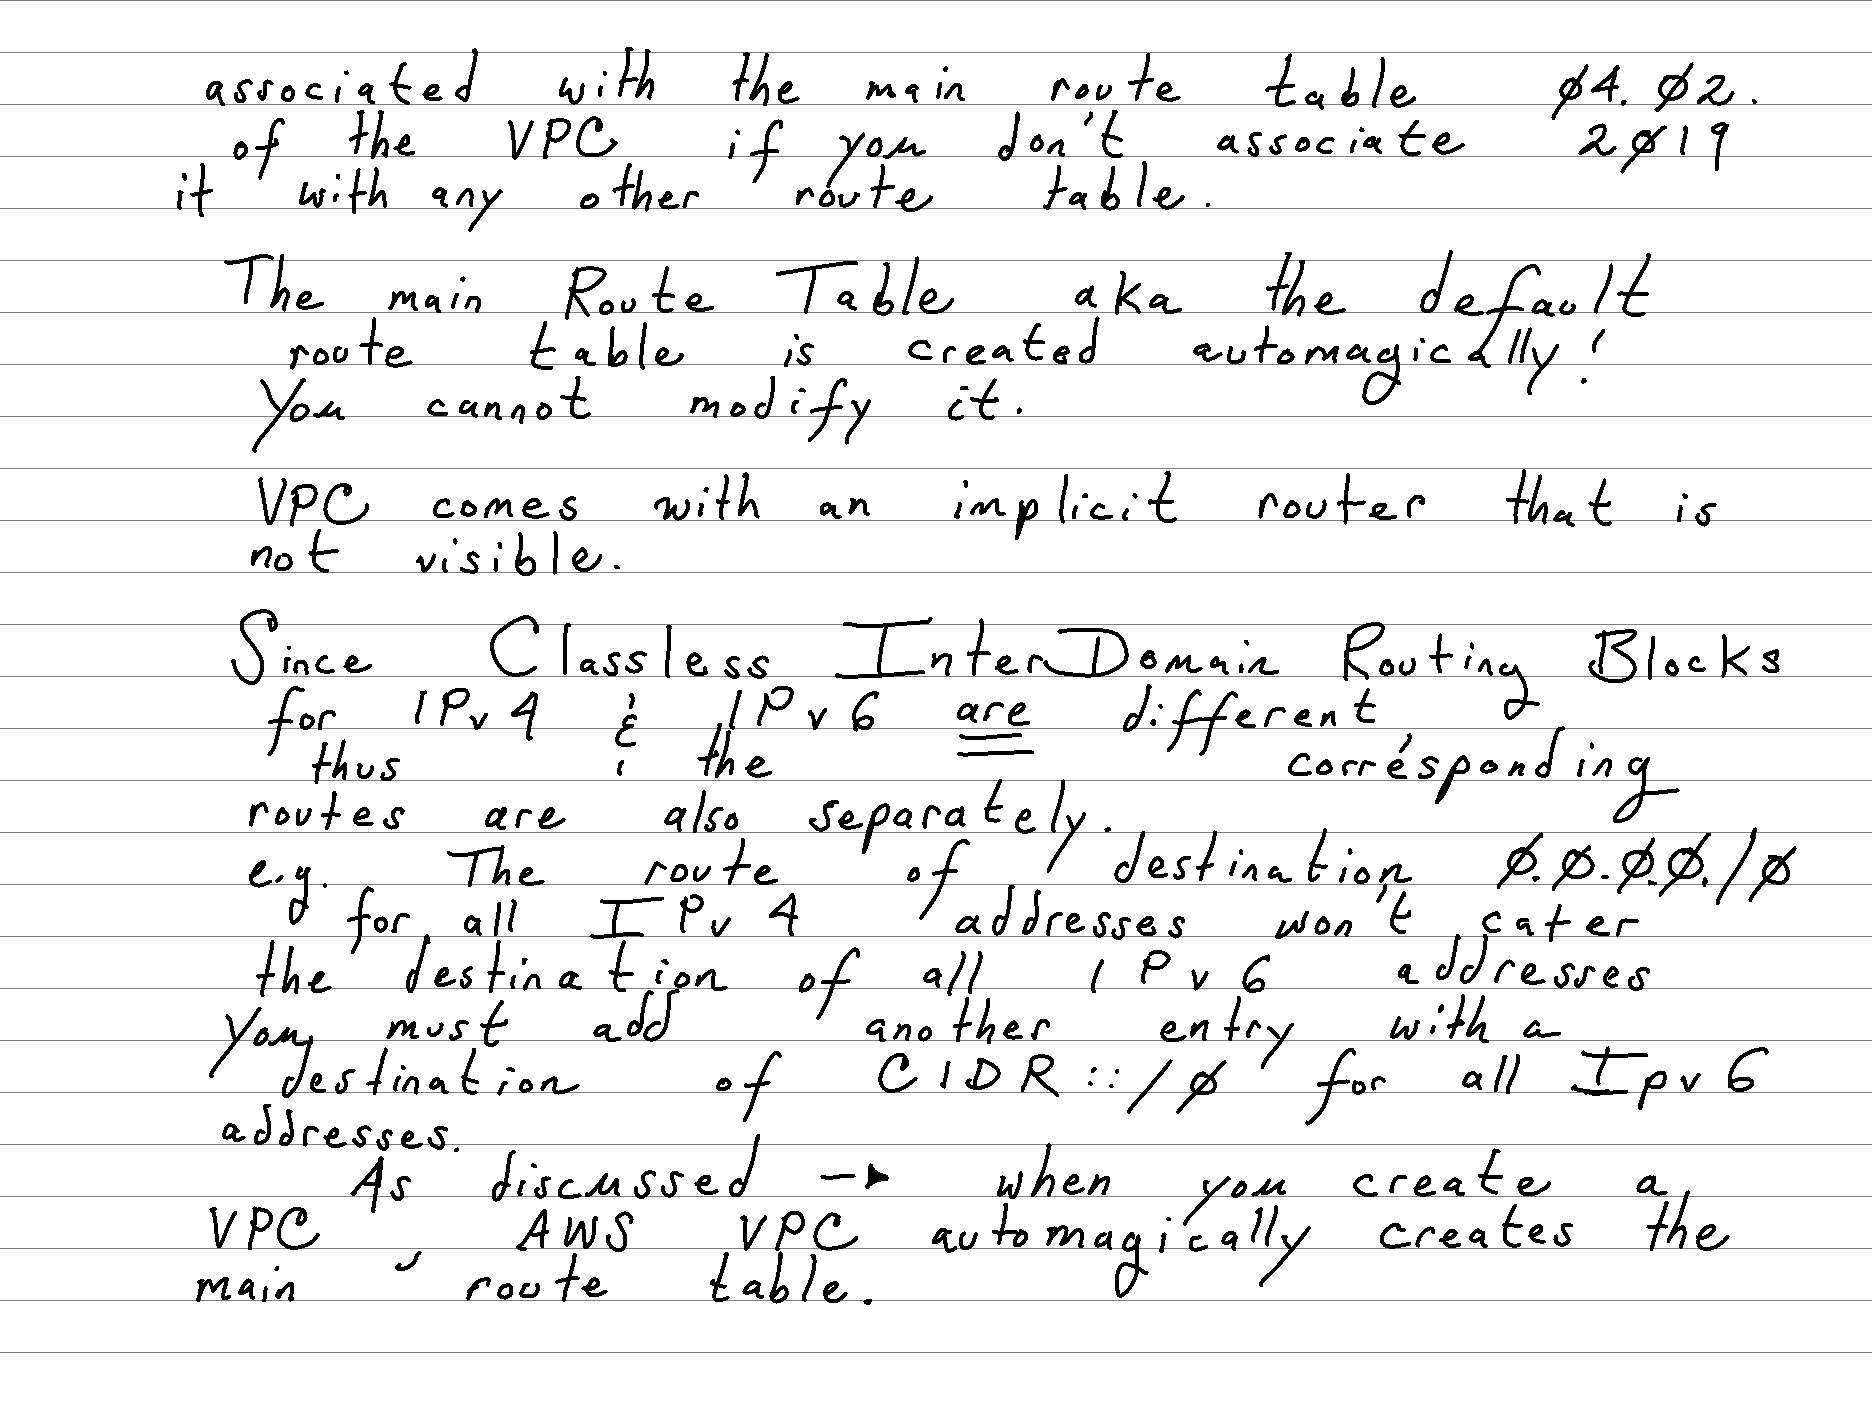 associated with the main route table Ø4. Ø2.
of the VPC if you don't associate 2Ø19
it with any other route table.
The main Route Table aka the default
route table is created automagically!
You cannot modify it.
VPC comes with an implicit router that is
not visible.
Since Classless InterDomain Routing Blocks
for IPv4 & IPv6 are different,
thus the corresponding
routes are also separately.
e.g. The route of destination Ø.Ø.Ø.Ø./Ø
for all IPv4 addresses won't cater
the destination of all IPv6 addresses
You must add another entry with a
destination of CIDR ::/Ø for all Ipv6
addresses.
As discussed → when you create a
VPC, AWS VPC automagically creates the
main route table.